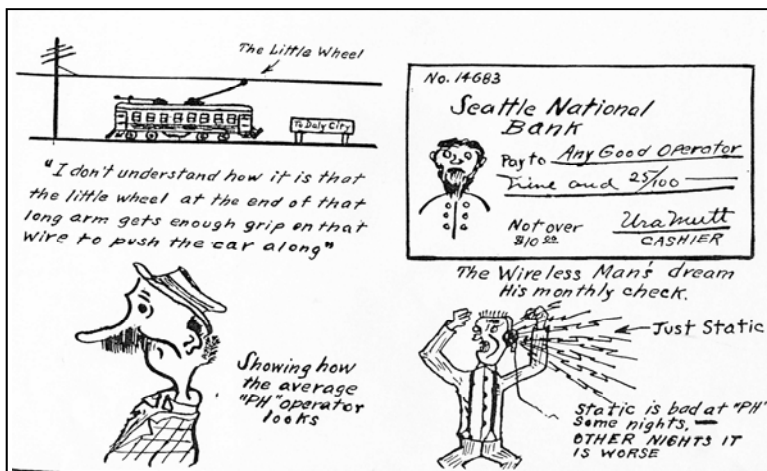 The Little Wheel
To Daly City
"I don't understand how it is that
the little wheel at the end of that
long arm gets enough grip on that
wire to push the car along"
Showing how
the average
"PH" operator
looks
No. 14683
Seattle National
Bank
Pay to Any Good Operator
Nine and 25/100
Not over
$10 00
Ura Mutt
CASHIER
The Wireless Man's dream
His monthly check.
Just Static
Static is bad at "PH"
some nights, —
OTHER NIGHTS IT
IS WORSE